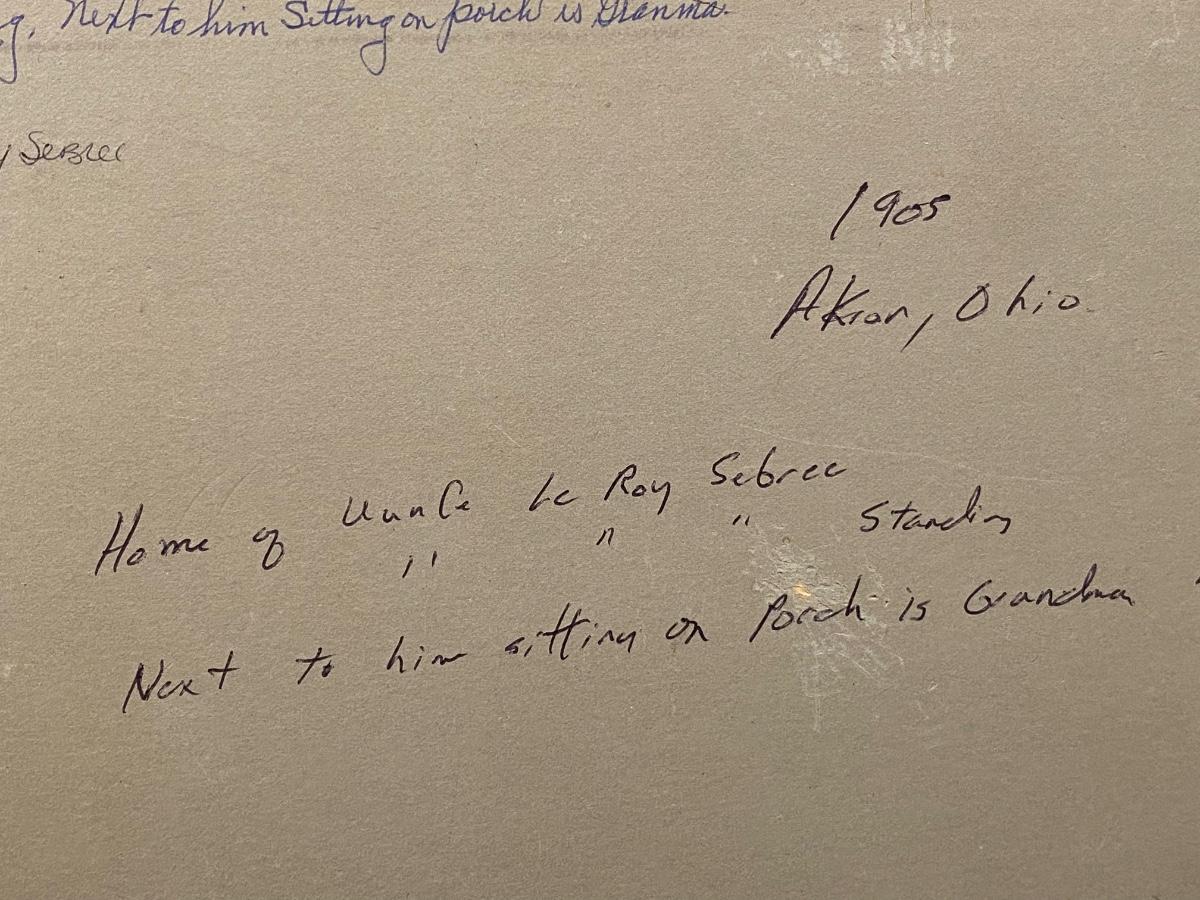 g. Next to him Sitting on porch is Granma.
y Sebree
1905
Akron, Ohio.
Home of Uuncle Le Roy Sebree
" " " Standing
Next to him sitting on Porch is Grandma